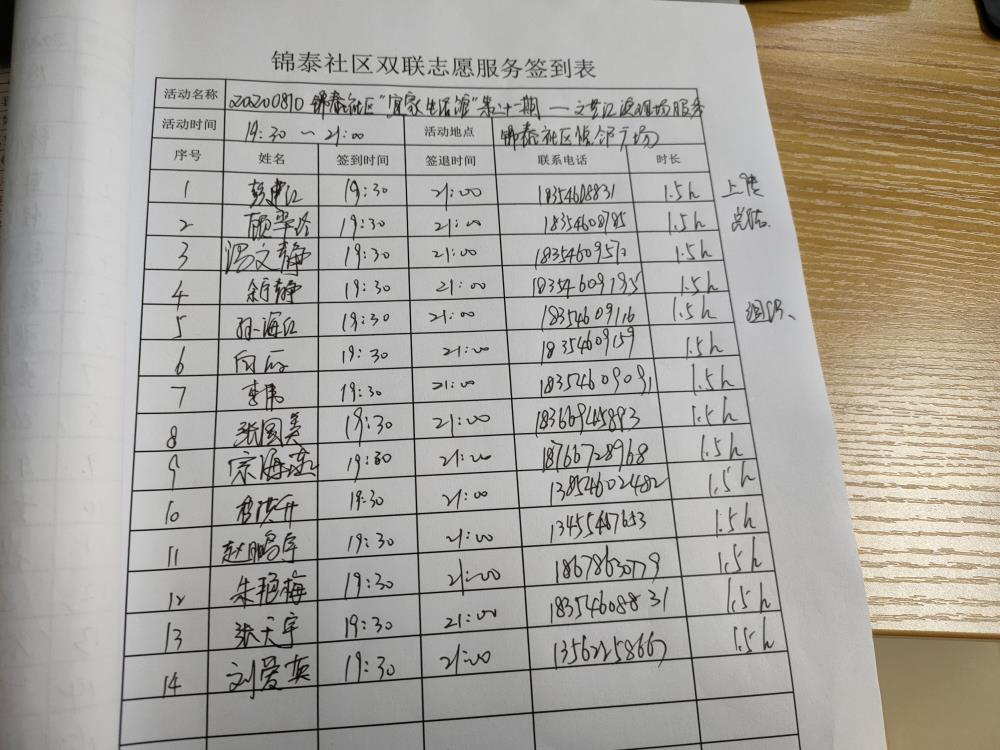 锦泰社区双联志愿服务签到表
活动名称 20200810 锦泰社区"宜家生活馆"第二十期 — 文艺汇演现场服务
活动时间 19:30 ~ 21:00 活动地点 锦泰社区睦邻广场
序号 姓名 签到时间 签退时间 联系电话 时长
1 彭建江 19:30 21:00 18354608831 1.5h 上传
2 顾 19:30 21:00 18354608785 1.5h 总结.
3 冯文静 19:30 21:00 1.5h
4 静 19:30 21:00 18354609195 1.5h
5 孙海红 19:30 21:00 18354609116 1.5h 组织、
6 19:30 21:00 18354609159 1.5h
7 李伟 19:30 21:00 18354609091 1.5h
8 张国美 19:30 21:00 18366945893 1.5h
9 宗海 19:30 21:00 18766728968 1.5h
10 19:30 21:00 13854602482 1.5h
11 赵鹏宇 19:30 21:00 1.5h
12 朱艳梅 19:30 21:00 18678630779 1.5h
13 张天宇 19:30 21:00 18354608831 1.5h
14 刘爱英 19:30 21:00 13562258667 1.5h